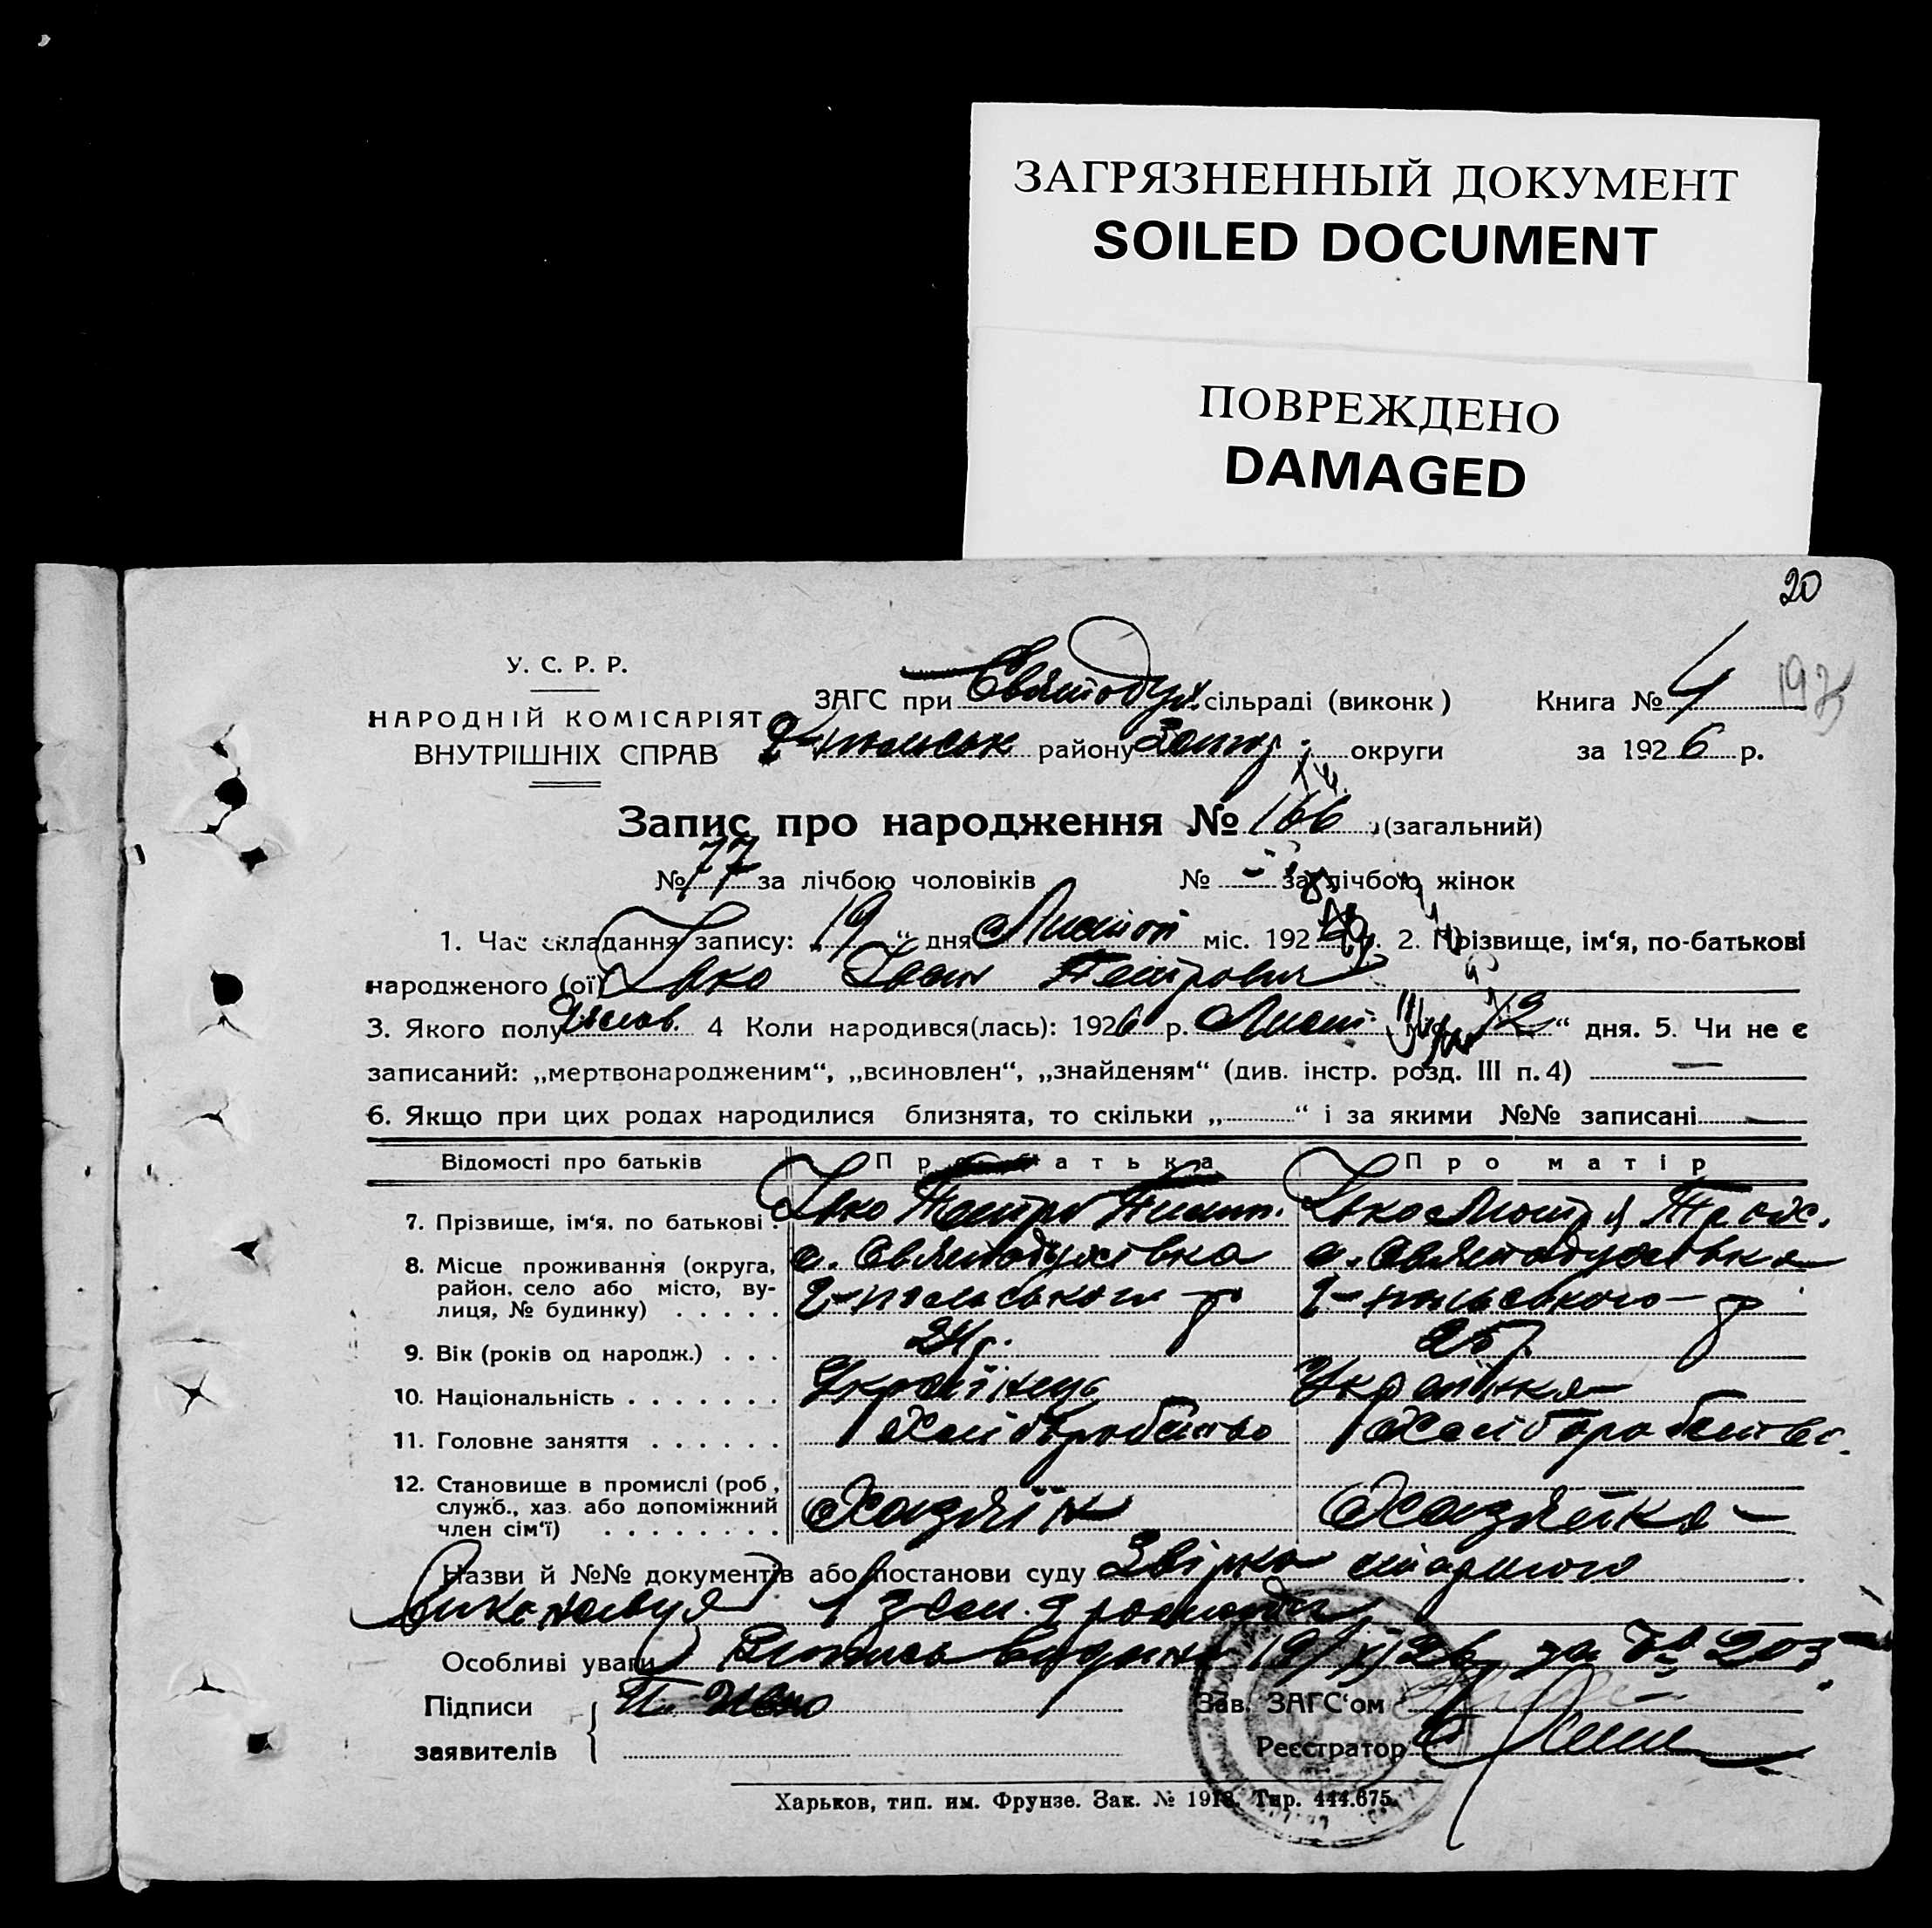 ЗАГРЯЗНЕННЫЙ ДОКУМЕНТ
SOILED DOCUMENT
ПОВРЕЖДЕНО
DAMAGED
20
У. С. Р. Р.
НАРОДНІЙ КОМІСАРІЯТ
ВНУТРІШНІХ СПРАВ
ЗАГС при Святодух. сільраді (виконк) Книга № 4
району округи за 1926 р.
Запис про народження № 166 (загальний)
№ 77 за лічбою чоловіків № - за лічбою жінок
1. Час складання запису: „19“ дня Листоп міс. 192 р. 2. Прізвище, ім‘я, по-батькові
народженого (ої) Іван Петрович
3. Якого полу Чолов. 4 Коли народився(лась): 1926 р. Лист. міс. 12“ дня. 5. Чи не є
записаний: „мертвонародженим“, „всиновлен“, „знайденям“ (див. інстр. розд. III п. 4) —
6. Якщо при цих родах народилися близнята, то скільки „ “ і за якими №№ записані —
Відомості про батьків Про батька Про матір
7. Прізвище, ім‘я, по батькові . Петро Пилип.
8. Місце проживання (округа, район, село або місто, вулиця, № будинку) . . . . . с. Святодухівка с. Святодухівка
9. Вік (років од народж.) . . . 24 р. 25 р.
10. Національність . . . . . . . Українець Українка
11. Головне заняття . . . . . . Хліборобство Хліборобство
12. Становище в промислі (роб, служб., хаз. або допоміжний член сім‘ї) . . . . . . . . Хазяїн Хазяйка
Назви й №№ документів або постанови суду Звірка
Особливі уваги Випись видана 19/XI 26 за № 203
Підписи
заявителів
Зав. ЗАГС‘ом
Реєстратор
Харьков, тип. им. Фрунзе. Зак. № 1913. Тир. 444.675.